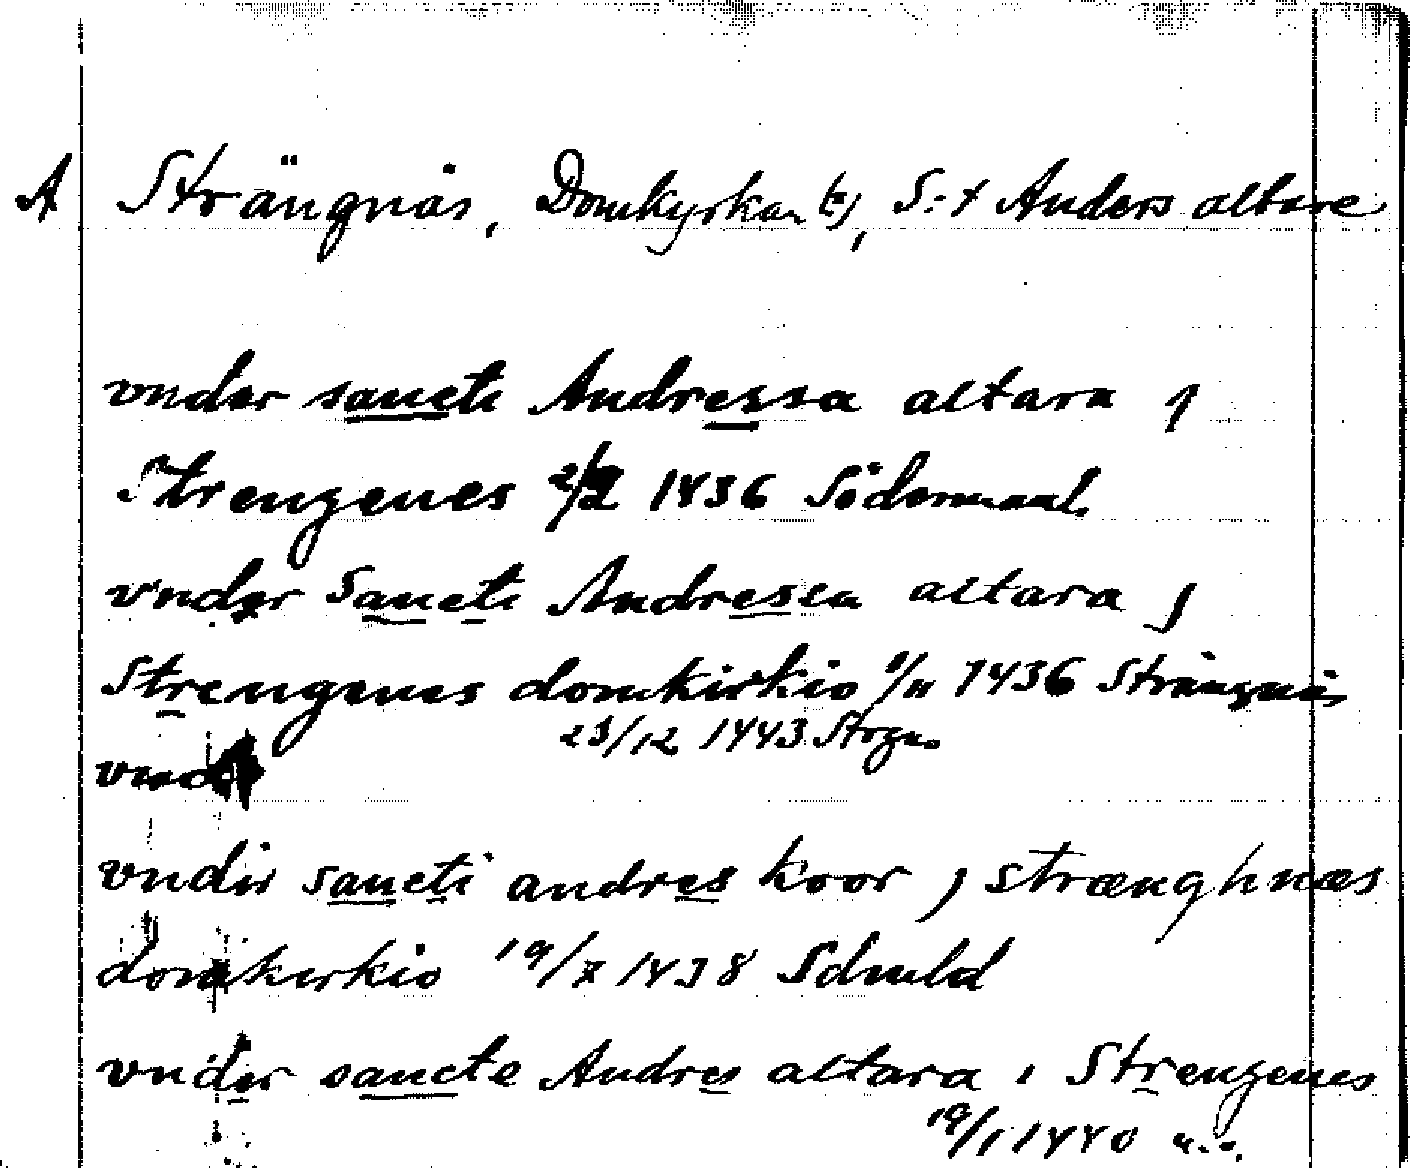 A Strängnäs, Domkyrkan (t), S:t Anders altare
vnder sancti Andressa altara j
Strengenes 2/2 1436 Södermanl.
vnder Sancti Andressa altara j
Strengenes domkirkio 8/11 1436 Strängnäs
23/12 1443 Strgn.
vnd
vndir sancti andres koor j strænghnæs
domkirkio 19/X 1438 Sdmld
vnder sancte Andres altara i Strengenes
19/1 1440